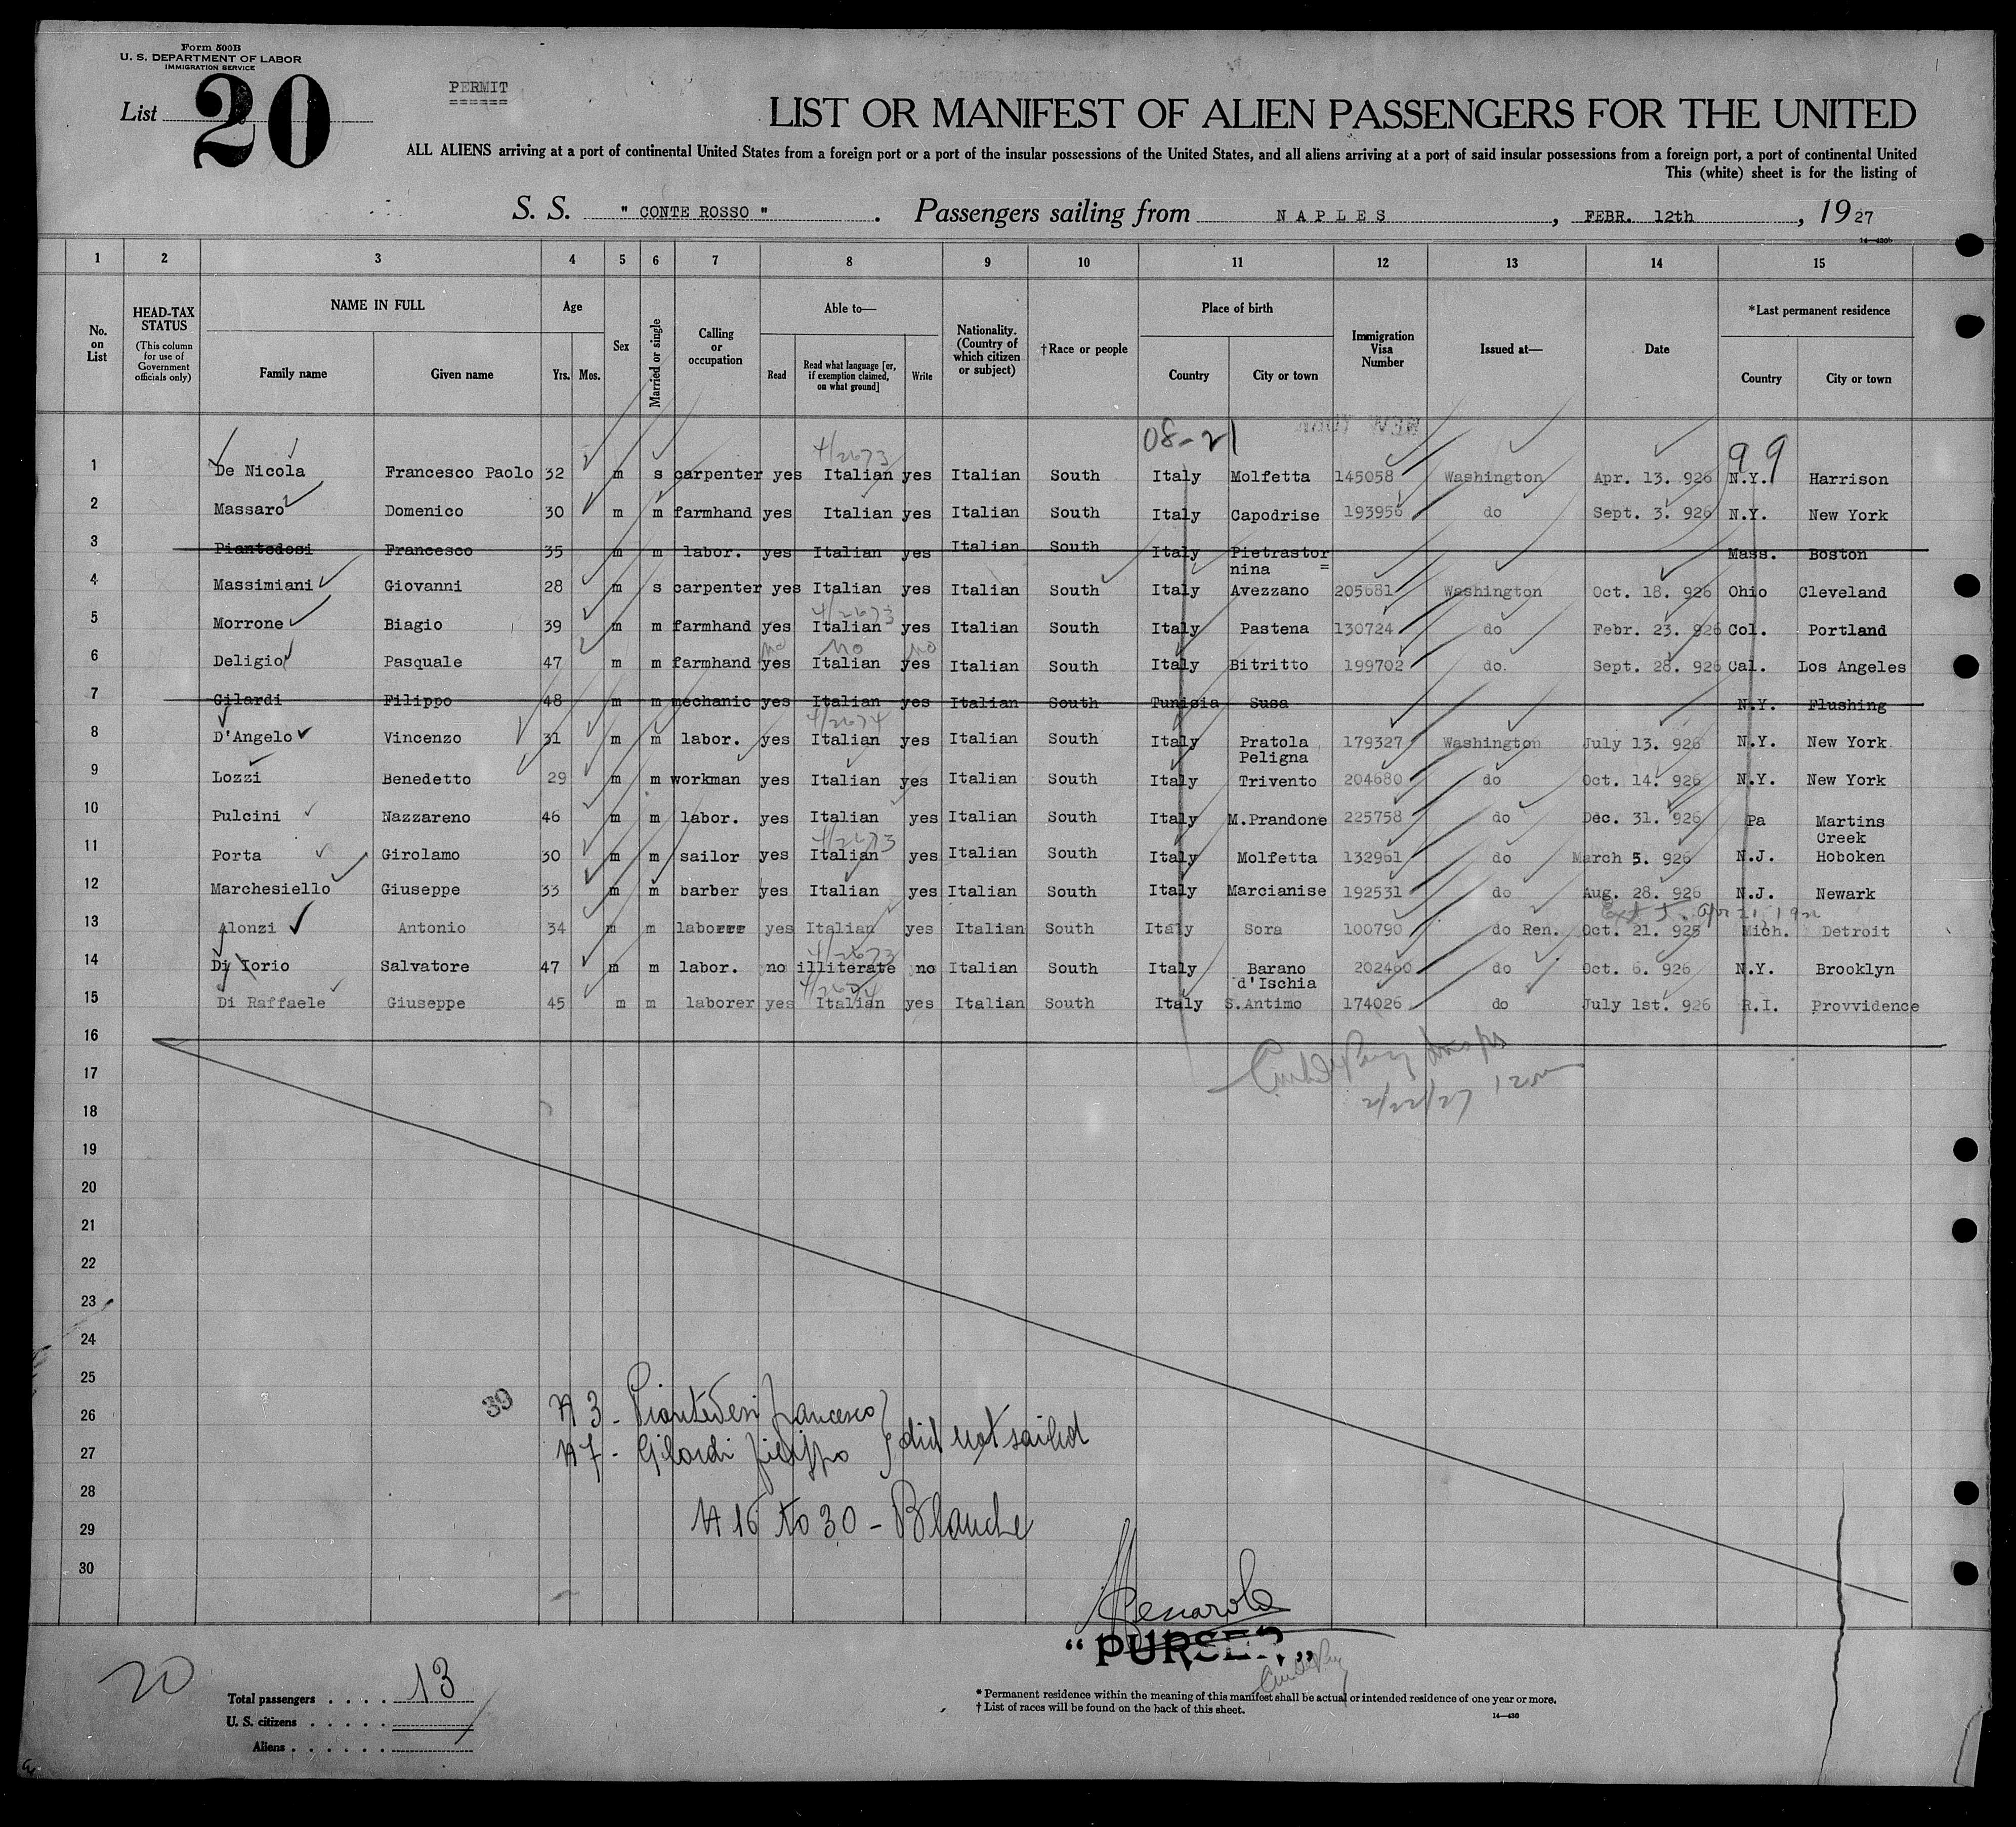 Form 500B
U. S. DEPARTMENT OF LABOR
IMMIGRATION SERVICE
List 20
PERMIT
LIST OR MANIFEST OF ALIEN PASSENGERS FOR THE UNITED
ALL ALIENS arriving at a port of continental United States from a foreign port or a port of the insular possessions of the United States, and all aliens arriving at a port of said insular possessions from a foreign port, a port of continental United
This (white) sheet is for the listing of
S. S. " CONTE ROSSO " . Passengers sailing from NAPLES , FEBR. 12th , 1927
14—430b
1 2 3 4 5 6 7 8 9 10 11 12 13 14 15
No. on List
HEAD-TAX STATUS (This column for use of Government officials only)
NAME IN FULL Family name Given name
Age Yrs. Mos.
Sex
Married or single
Calling or occupation
Able to— Read Read what language [or, if exemption claimed, on what ground] Write
Nationality. (Country of which citizen or subject)
†Race or people
Place of birth Country City or town
Immigration Visa Number
Issued at—
Date
*Last permanent residence Country City or town
08-21
99
4/2673
1 De Nicola Francesco Paolo 32 m s carpenter yes Italian yes Italian South Italy Molfetta 145058 Washington Apr. 13. 926 N.Y. Harrison
2 Massaro Domenico 30 m m farmhand yes Italian yes Italian South Italy Capodrise 193956 do Sept. 3. 926 N.Y. New York
3 Piantedosi Francesco 35 m m labor. yes Italian yes Italian South Italy Pietrastor= nina Mass. Boston
4 Massimiani Giovanni 28 m s carpenter yes Italian yes Italian South Italy Avezzano 205681 Washington Oct. 18. 926 Ohio Cleveland
4/2673
5 Morrone Biagio 39 m m farmhand yes Italian yes Italian South Italy Pastena 130724 do Febr. 23. 926 Col. Portland
no no no
6 Deligio Pasquale 47 m m farmhand yes Italian yes Italian South Italy Bitritto 199702 do. Sept. 28. 926 Cal. Los Angeles
7 Gilardi Filippo 48 m m mechanic yes Italian yes Italian South Tunisia Susa N.Y. Flushing
4/2674
8 D'Angelo Vincenzo 31 m m labor. yes Italian yes Italian South Italy Pratola Peligna 179327 Washington July 13. 926 N.Y. New York
9 Lozzi Benedetto 29 m m workman yes Italian yes Italian South Italy Trivento 204680 do Oct. 14. 926 N.Y. New York
10 Pulcini Nazzareno 46 m m labor. yes Italian yes Italian South Italy M.Prandone 225758 do Dec. 31. 926 Pa Martins Creek
4/2673
11 Porta Girolamo 30 m m sailor yes Italian yes Italian South Italy Molfetta 132961 do March 5. 926 N.J. Hoboken
12 Marchesiello Giuseppe 33 m m barber yes Italian yes Italian South Italy Marcianise 192531 do Aug. 28. 926 N.J. Newark
13 Alonzi Antonio 34 m m laborer yes Italian yes Italian South Italy Sora 100790 do Ren. Oct. 21. 925 Mich. Detroit
4/2673
14 Di Iorio Salvatore 47 m m labor. no illiterate no Italian South Italy Barano d'Ischia 202460 do Oct. 6. 926 N.Y. Brooklyn
4/2674
15 Di Raffaele Giuseppe 45 m m laborer yes Italian yes Italian South Italy S.Antimo 174026 do July 1st. 926 R.I. Provvidence
16
17
2/22/27
18
19
20
21
22
23
24
25
39
26 N 3 - Piantedosi Francesco
27 N 7 - Gilardi Filippo } did not sailed
28
29 N 16 to 30 - Blanche
30
"PURSER"
20
Total passengers . . . . 13
U. S. citizens . . . . .
Aliens . . . . . .
* Permanent residence within the meaning of this manifest shall be actual or intended residence of one year or more.
† List of races will be found on the back of this sheet.
14—430